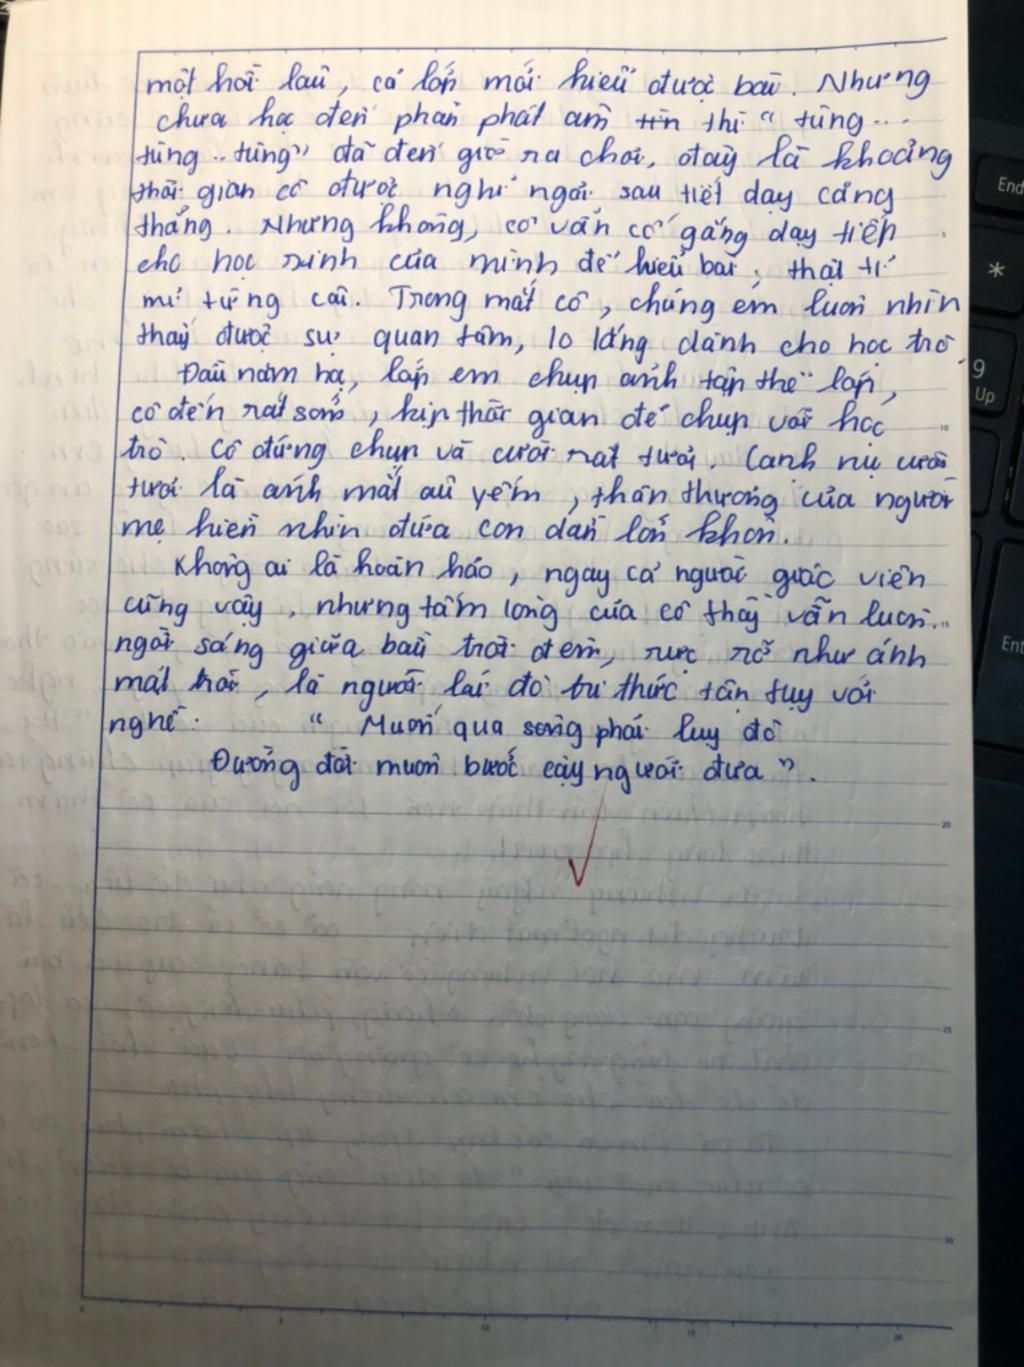 một hồi lâu, cả lớp mới hiểu được bài. Nhưng
chưa học đến phần phát âm thì “tùng...
tùng.. tùng” đã đến giờ ra chơi, đây là khoảng
thời gian cô được nghỉ ngơi sau tiết dạy căng
thẳng. Nhưng không, cô vẫn cố gắng dạy tiếp
cho học sinh của mình để hiểu bài, thật tỉ
mỉ từng cái. Trong mắt cô, chúng em luôn nhìn
thấy được sự quan tâm, lo lắng dành cho học trò.
Đầu năm học, lớp em chụp ảnh tập thể lớp,
cô đến rất sớm, kịp thời gian để chụp với học
trò. Cô đứng chụp và cười rất tươi. Cạnh nụ cười
tươi là ánh mắt âu yếm, thân thương của người
mẹ hiền nhìn đứa con dần lớn khôn.
Không ai là hoàn hảo, ngay cả người giáo viên
cũng vậy, nhưng tấm lòng của cô thầy vẫn luôn..
ngời sáng giữa bầu trời đêm, rực rỡ như ánh
mặt trời, là người lái đò tri thức tận tụy với
nghề: “ Muốn qua sông phải lụy đò
Đường đời muôn bước cậy người đưa”.
10
20
25
30
5
10
15
20
End
*
9
Up
Ent